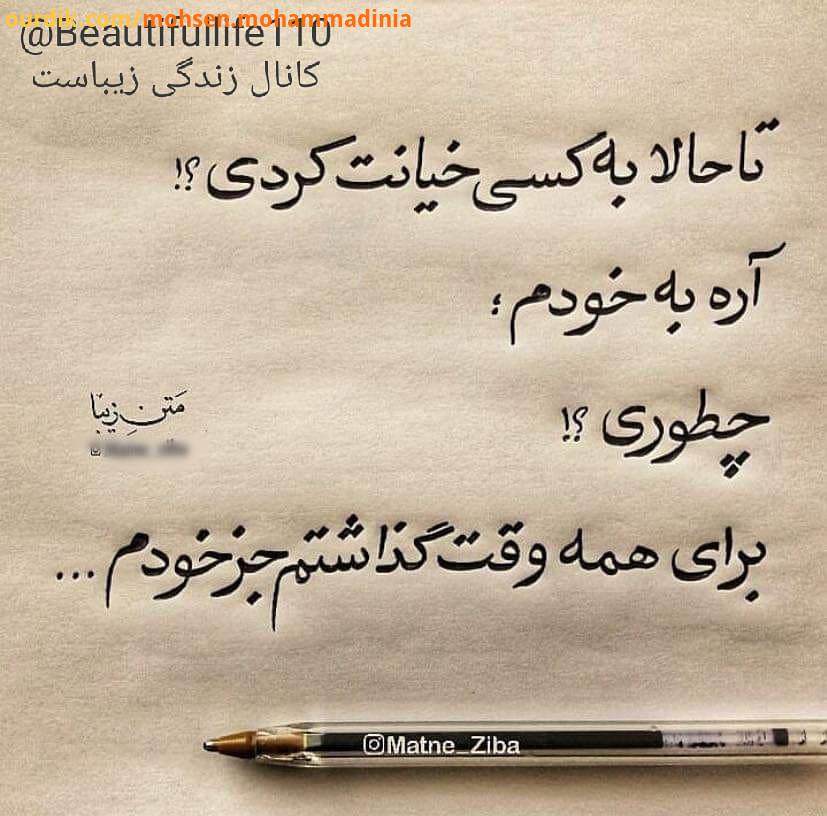 ourdik.com/mohsen.mohammadinia
@Beautifullife110
کانال زندگی زیباست
تا حالا به کسی خیانت کردی ؟!
آره به خودم ؛
چطوری ؟!
متن زیبا
برای همه وقت گذاشتم جز خودم ...
Matne_Ziba